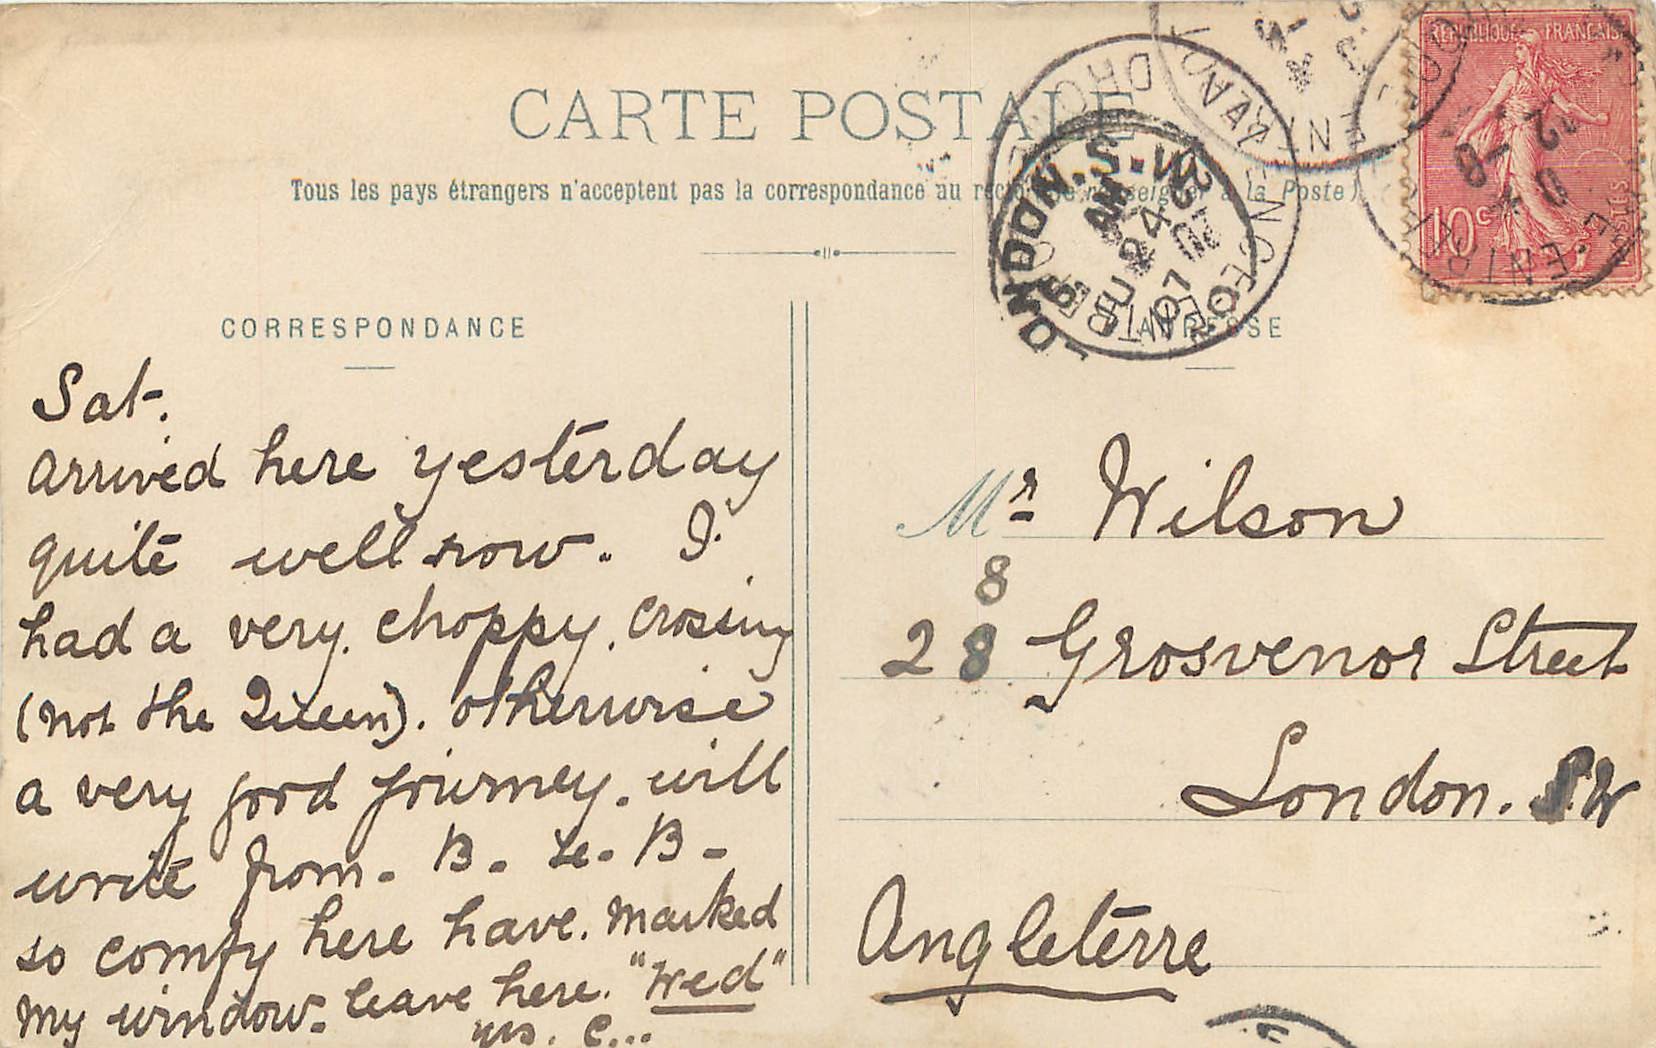 CARTE POSTALE
Tous les pays étrangers n'acceptent pas la correspondance au recto (Se renseigner à la Poste)
RÉPUBLIQUE FRANÇAISE
10c
LONDON. S.W.
AM
JU 24
07
CORRESPONDANCE
ADRESSE
Sat.
arrived here yesterday
quite well now. I
had a very choppy crossing
(not the Queen). otherwise
a very good journey. will
write from. B. Le. B-
so comfy here have. marked
my window. leave here. "Wed"
yrs. C...
Mr Wilson
8
28 Grosvenor Street
London. SW
Angleterre